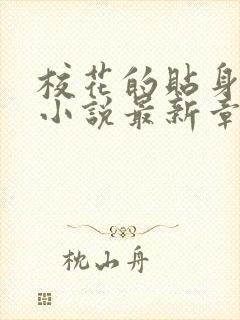 校花的貼身
小說最新章
枕山舟